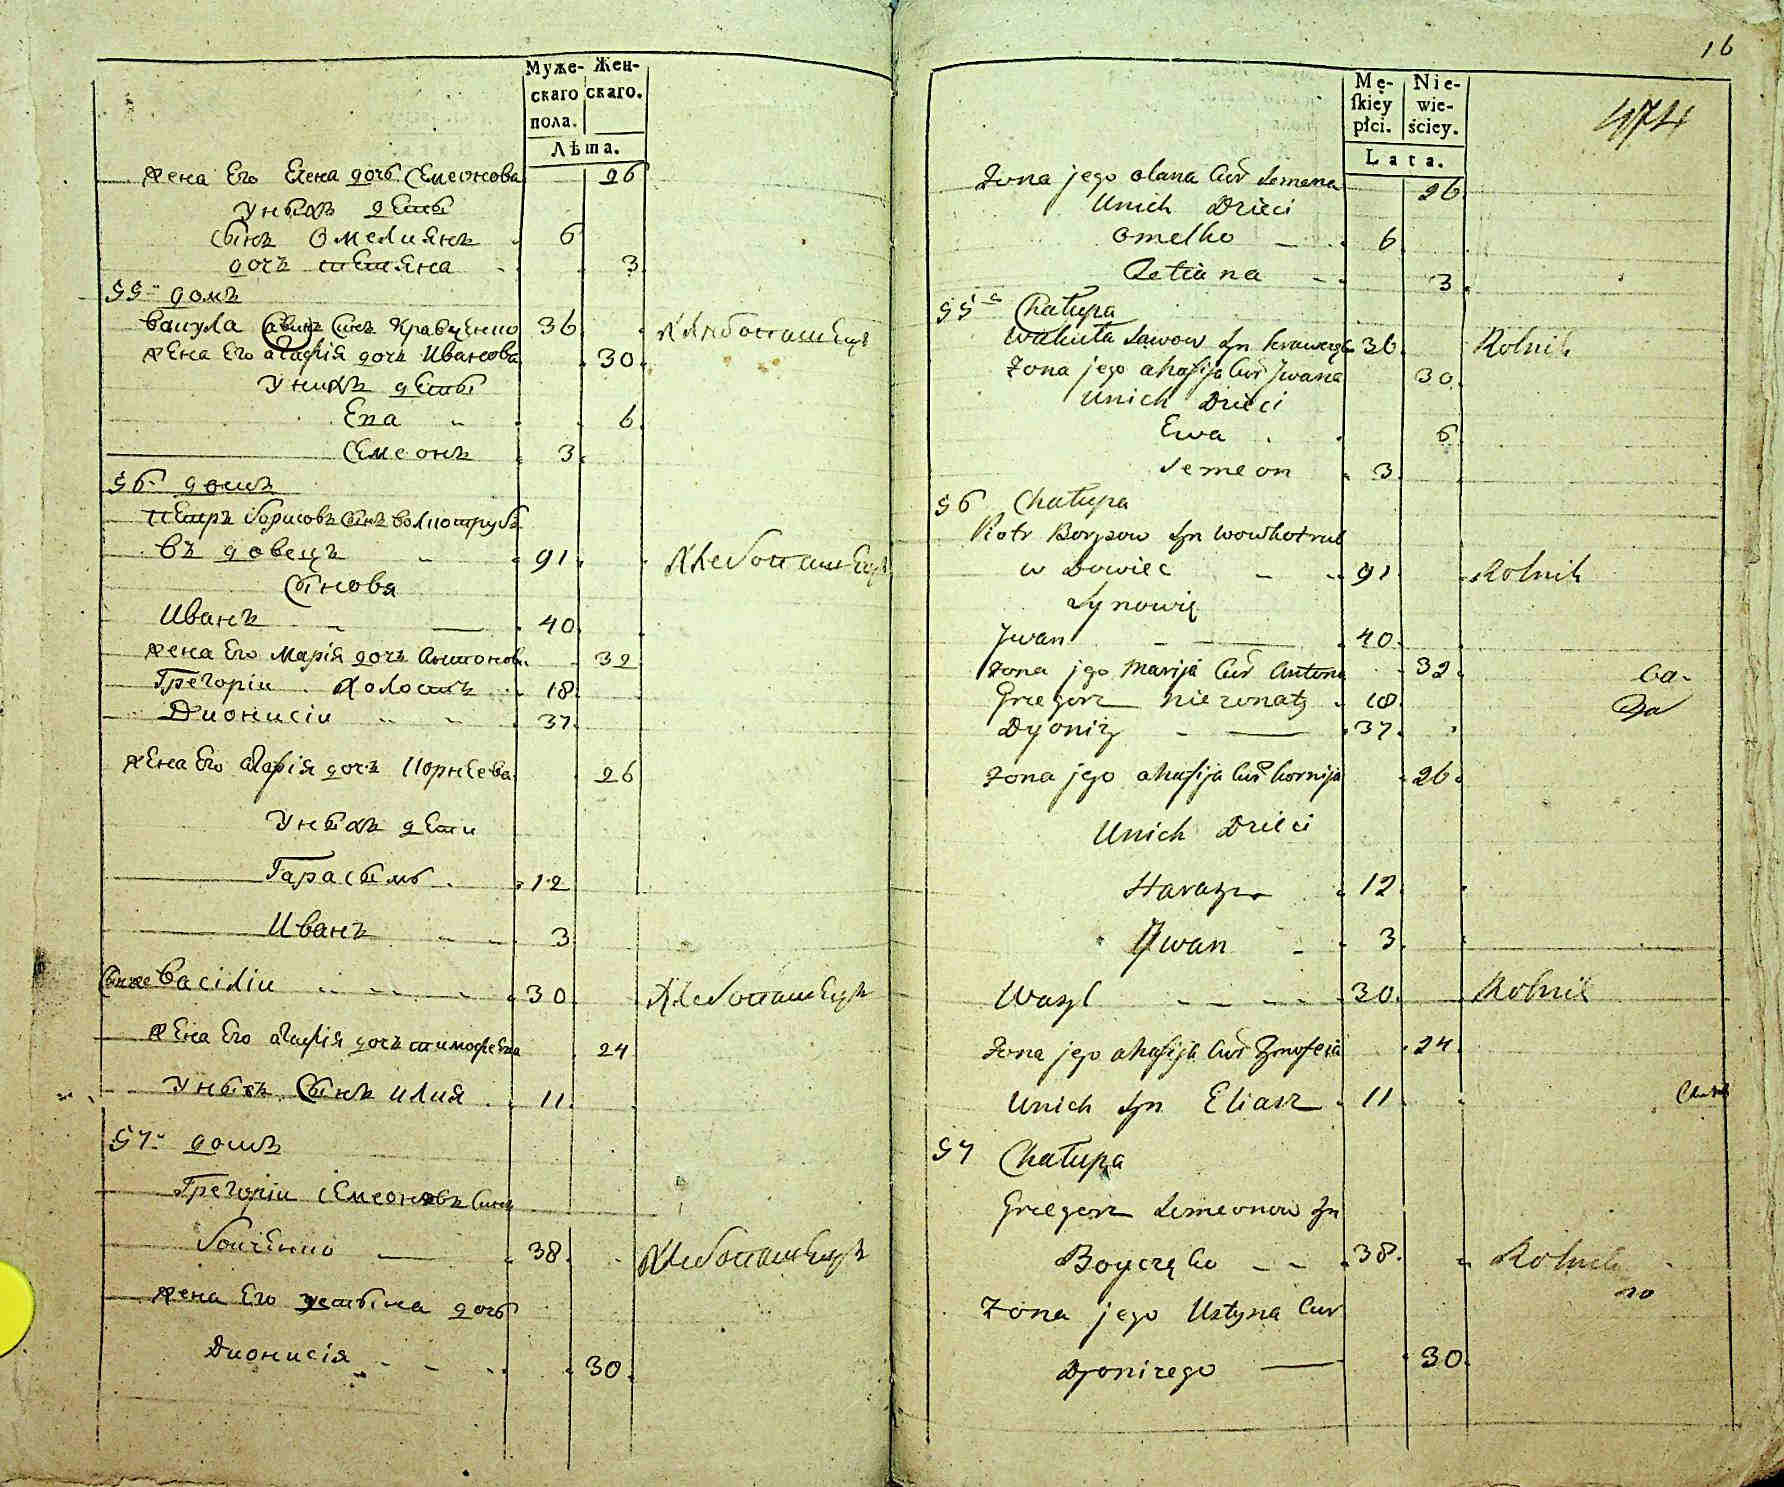 Муже- Жен-
скаго скаго.
пола.
Лѣта.
жена Его Елена дочь Семенова 26
Унихъ дети
Сынъ Омелиянъ 6
дочь тетяна 3
55й домъ
Вакула Савинъ Сынъ Кравченко 36 хлебопашецъ
жена Его агафія дочь Иванова 30
Унихъ дети
Ева 6
Семеонъ 3
56й домъ
петръ борисовъ Сынъ Волкотрубъ
въ довецъ 91 хлебопашецъ
Сынова
Иванъ 40
жена Его марія дочь антонова 32
Григоріи холостъ 18
Дионисіи 37
жена Его агафія дочь Корнеева 26
Унихъ дети
Гарасымъ 12
Иванъ 3
Сынже Василіи 30 хлебопашецъ
жена Его агафія дочь тимофеева 24
Унихъ Сынъ илия 11
57й домъ
Григоріи Семеоновъ Сынъ
боиченко 38 хлебопашецъ
жена Его устына дочь
Дионисія 30
16
Mę- Nie-
skiey wie-
płci. ściey.
Lata.
474
Zona jego olana Cur Semena 26
Unich Dzieci
Omelko 6
Tetiana 3
55a Chałupa
Wakuła Sawow Syn Krawczęko 36 Rolnik
Zona jego ahafija Cur Jwana 30
Unich Dzieci
Ewa 6
Semeon 3
56 Chałupa
Piotr Borysow Syn Wowkotrub
w Dowiec 91 Rolnik
Synowię
Jwan 40
Zona jego Marija Cur Antona 32
Grzegorz niezonaty 18
Dyonizy 37
Zona jego ahafija Cur Kornija 26
Unich Dzieci
Harazym 12
Jwan 3
Wazyl 30 Rolnik
Zona jego ahafija Cur Tymofeia 24
Unich Syn Eliasz 11
57 Chałupa
Grzegorz Semeonow Syn
Boyczęko 38 Rolnik
Zona jego Ustyna Cur
Dyonizego 30